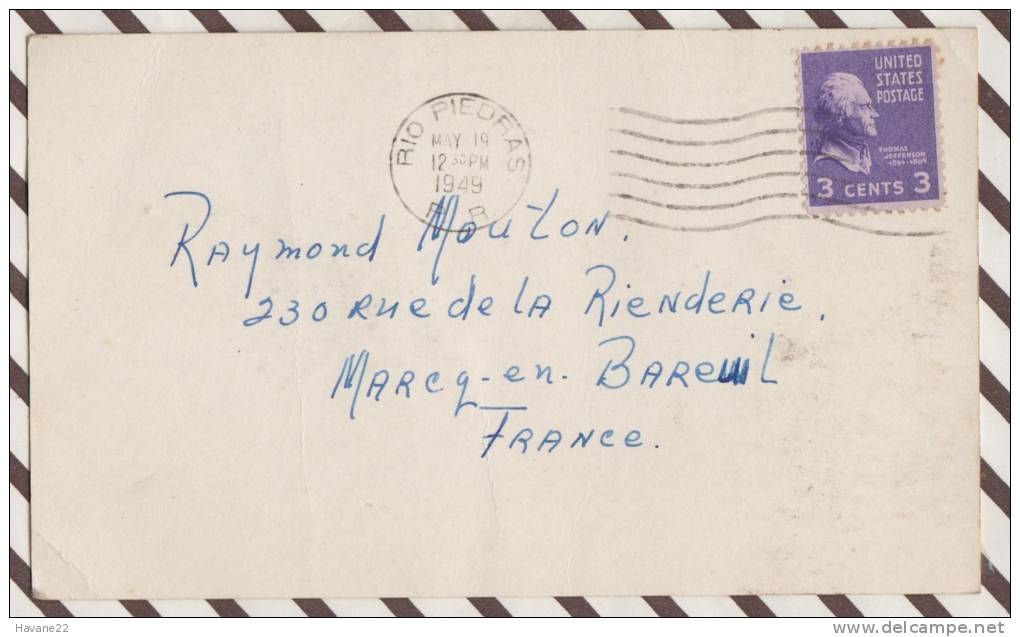 RIO PIEDRAS
MAY 19
12 30 PM
1949
P. R.
UNITED
STATES
POSTAGE
THOMAS
JEFFERSON
1801-1809
3 CENTS 3
Raymond Mouton.
230 rue de la Rienderie.
Marcq-en-Bareuil
France.
Havane22
delcampe.net